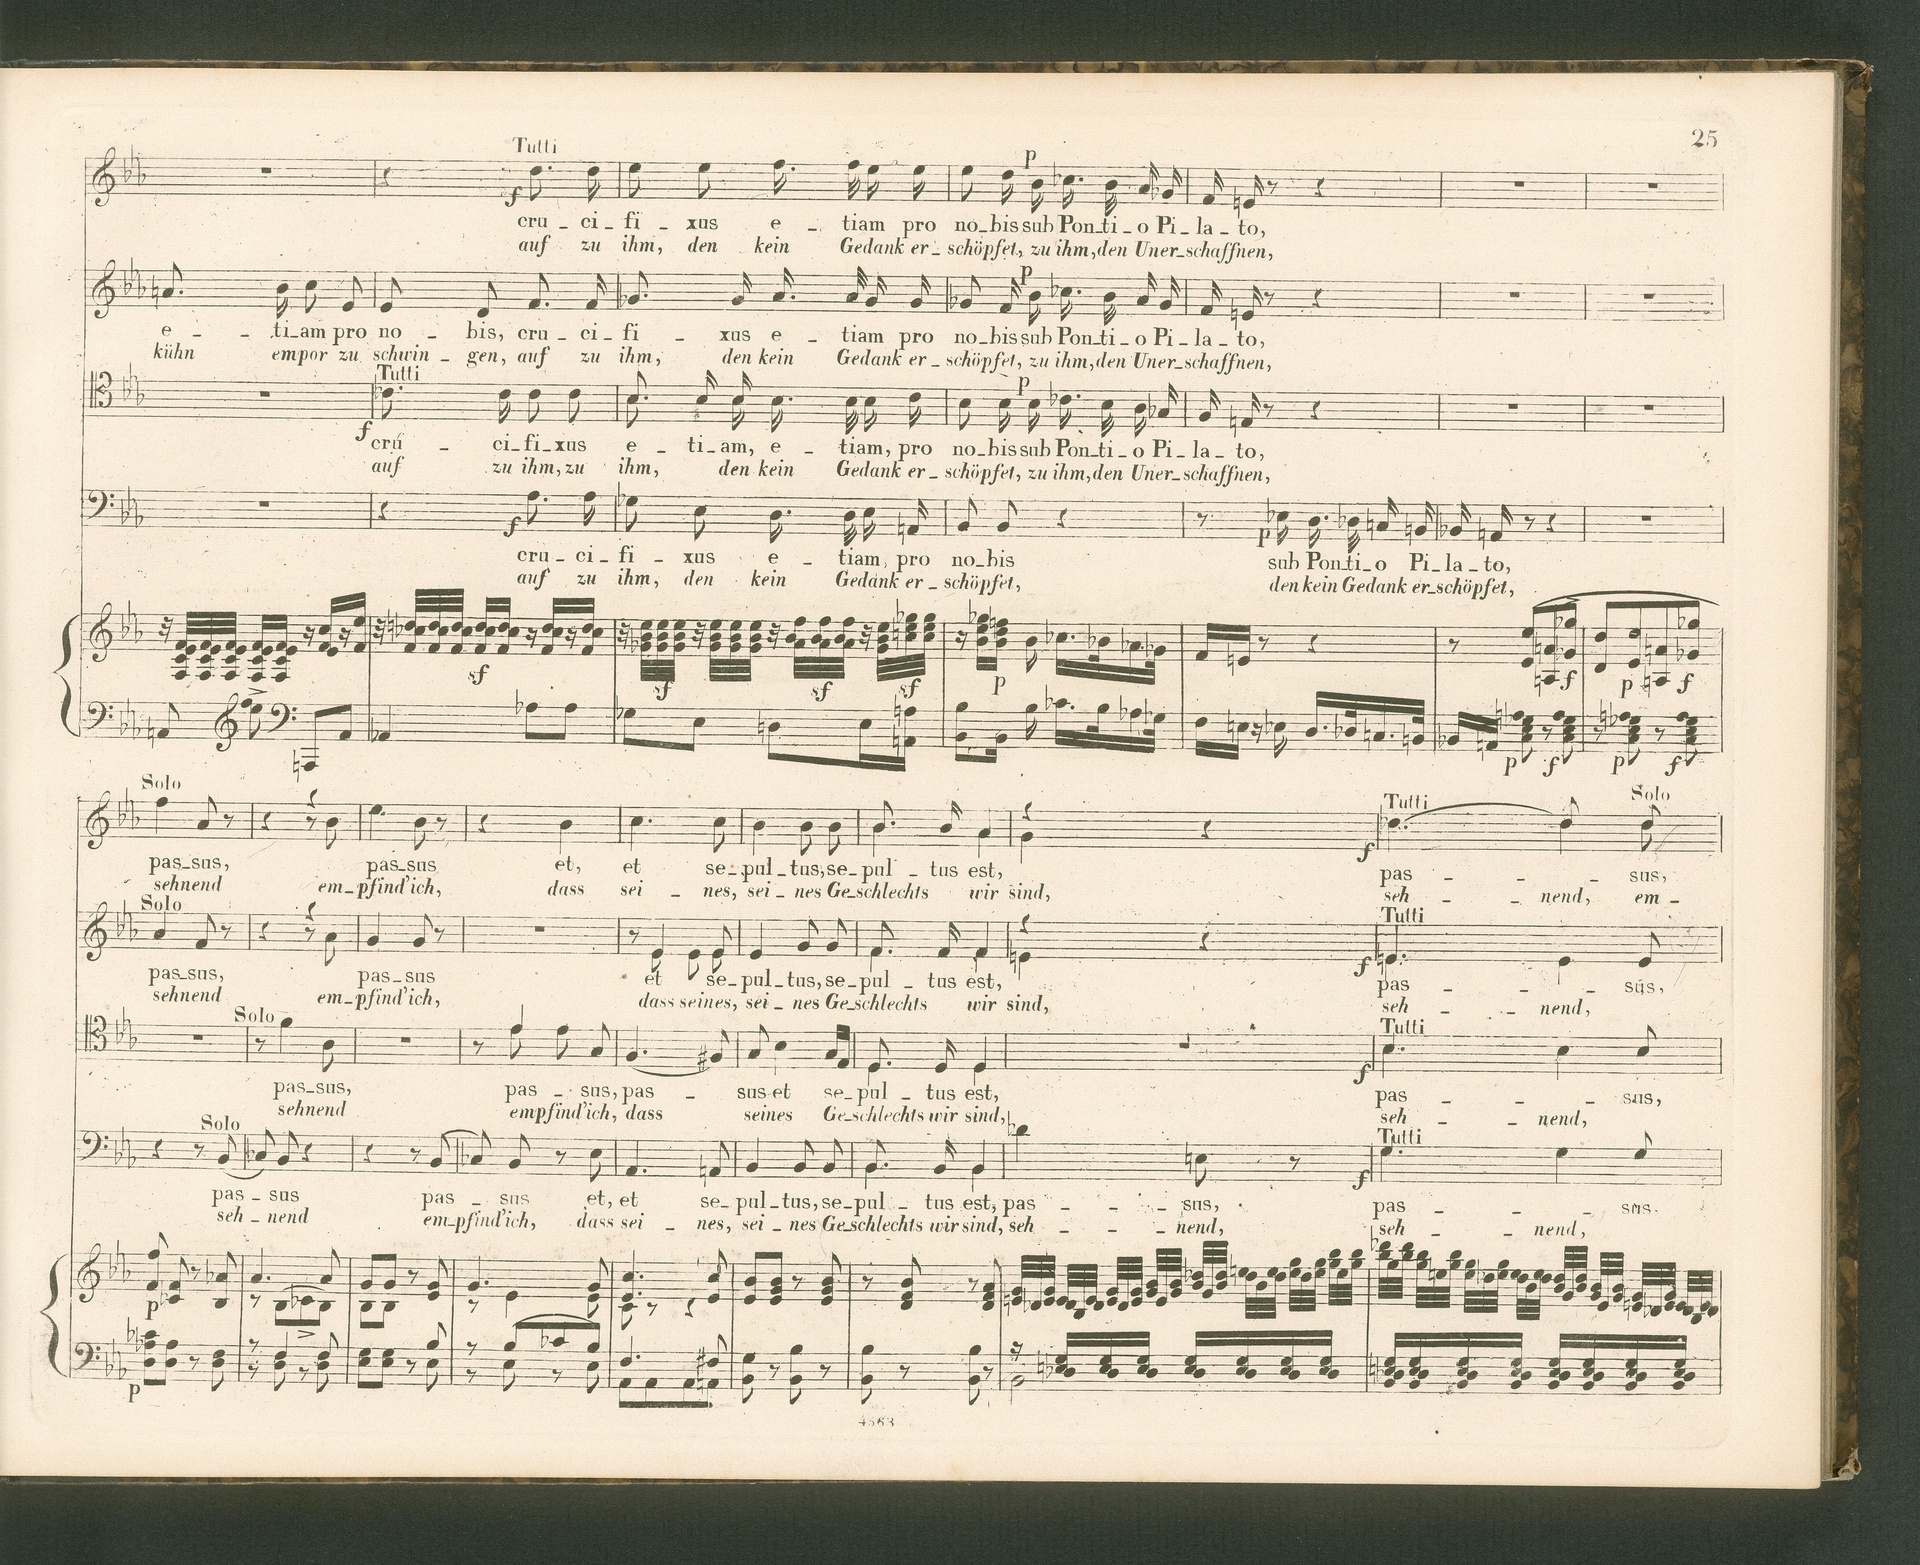 25
Tutti
f
cru - ci - fi - xus e - tiam pro no_bis sub Pon_ti - o Pi - la - to,
auf zu ihm, den kein Gedank er - schöpfet, zu ihm, den Uner_schaffnen,
p
e - - ti_am pro no - bis, cru - ci - fi xus e - tiam pro no_bis sub Pon_ti - o Pi - la - to,
kühn empor zu schwin - gen, auf zu ihm, den kein Gedank er - schöpfet, zu ihm, den Uner_schaffnen,
Tutti p
f
cru - ci_fi_xus e - ti_am, e - tiam, pro no_bis sub Pon_ti - o Pi - la - to,
auf zu ihm, zu ihm, den kein Gedank er - schöpfet, zu ihm, den Uner_schaffnen,
f p
cru - ci - fi - xus e - tiam, pro no_bis sub Pon_ti_o Pi_la_to,
auf zu ihm, den kein Gedank er - schöpfet, den kein Gedank er_schöpfet,
sf sf sf sf p f p f
p f p f
Solo Tutti Solo
f
pas_sus, pas_sus et, et se_pul_tus, se_pul - tus est, pas - - - sus,
sehnend em_pfind'ich, dass sei - nes, sei - nes Ge_schlechts wir sind, seh - - nend, em -
Solo Tutti
f
pas_sus, pas_sus et se_pul_tus, se_pul - tus est, pas - - - sus,
sehnend em_pfind'ich, dass seines, sei - nes Ge_schlechts wir sind, seh - - nend,
Solo Tutti
f
pas_sus, pas - sus, pas - sus et se_pul - tus est, pas - - - sus,
sehnend empfind'ich, dass seines Ge_schlechts wir sind, seh - - nend,
Solo Tutti
f
pas - sus pas - sus et, et se_pul_tus, se_pul - tus est, pas - - - sus, pas - - - sus.
seh - nend em_pfind'ich, dass sei - nes, sei - nes Ge_schlechts wir sind, seh - - - nend, seh - - nend,
p
p
4563